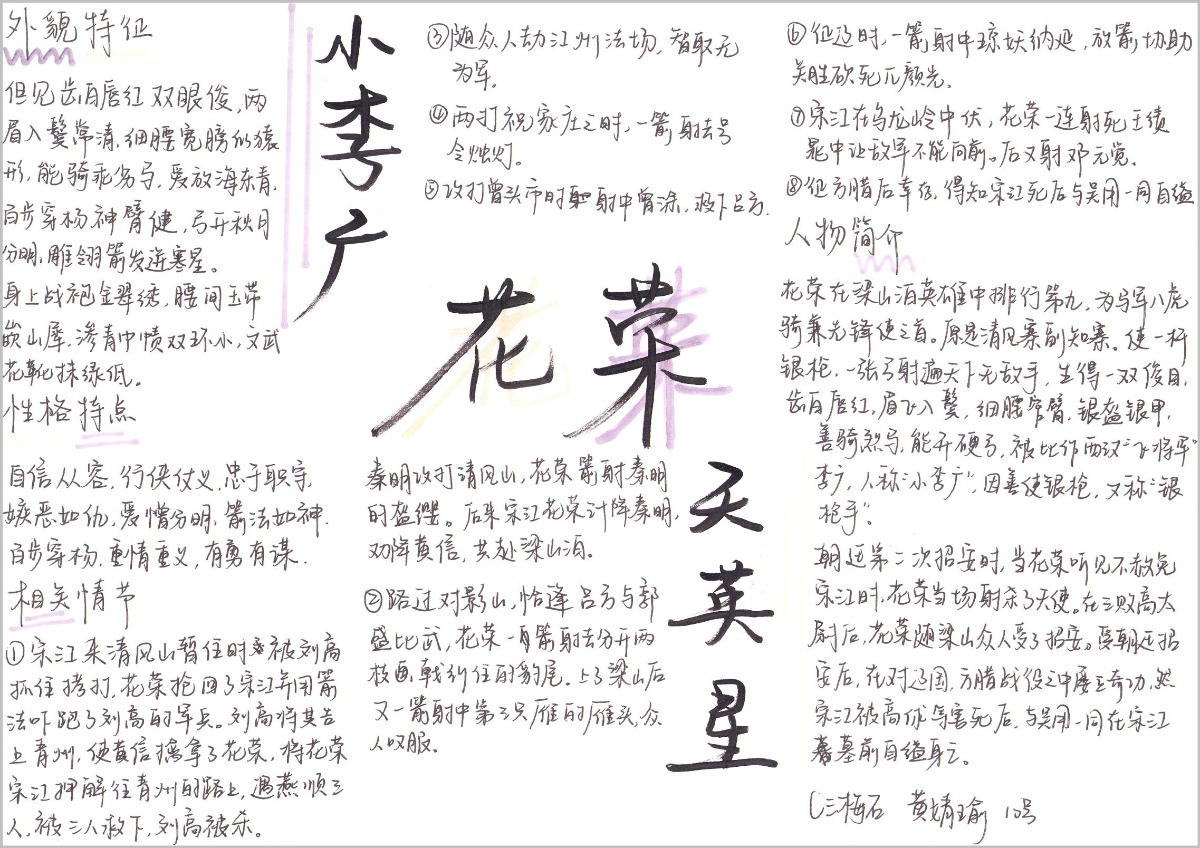 外貌特征
但见齿白唇红双眼俊,两
眉入鬓常清,细腰宽膀似猿
形,能骑乖劣马,爱放海东青,
百步穿杨神臂健,弓开秋月
分明,雕翎箭发迸寒星。
身上战袍金翠绣,腰间玉带
嵌山犀,渗青巾帻双环小,文武
花靴抹绿低。
性格特点
自信从容,行侠仗义,忠于职守,
嫉恶如仇,爱憎分明,箭法如神.
百步穿杨,重情重义,有勇有谋.
相关情节
①宋江来清风山暂住时被刘高
抓住拷打,花荣抢回了宋江并用箭
法吓跑了刘高的军兵。刘高将其告
上青州,使黄信擒拿了花荣,将花荣
宋江押解往青州的路上,遇燕顺三
人,被三人救下,刘高被杀。
小李广
花荣
天英星
秦明攻打清风山,花荣箭射秦明
的盔缨。后来宋江花荣计降秦明,
劝降黄信,共赴梁山泊。
②路过对影山,恰逢吕方与郭
盛比武,花荣一箭射去分开两
枝画戟纠住的豹尾。上了梁山后
又一箭射中第三只雁的雁头,众
人叹服。
③随众人劫江州法场,智取无
为军。
④两打祝家庄之时,一箭射去号
令烛灯。
⑤攻打曾头市时射中曾涂,救下吕方.
⑥征辽时,一箭射中琼妖纳延,放箭协助
关胜砍死兀颜光。
⑦宋江在乌龙岭中伏,花荣一连射死王绩
晁中让敌军不能向前。后又射邓元觉.
⑧征方腊后幸存,得知宋江死后与吴用一同自缢
人物简介
花荣在梁山泊英雄中排行第九,为马军八虎
骑兼先锋使之首。原是清风寨副知寨。使一杆
银枪,一张弓射遍天下无敌手,生得一双俊目,
齿白唇红,眉飞入鬓,细腰窄臂,银盔银甲,
善骑烈马,能开硬弓,被比作西汉"飞将军"
李广,人称"小李广",因善使银枪,又称"银
枪手"。
朝廷第二次招安时,当花荣听见不赦免
宋江时,花荣当场射杀了天使。在三败高太
尉后,花荣随梁山众人受了招安。受朝廷招
安后,在对辽国,方腊战役之中屡立奇功,然
宋江被高俅等害死后,与吴用一同在宋江
墓前自缢身亡。
黄婧瑜 10号